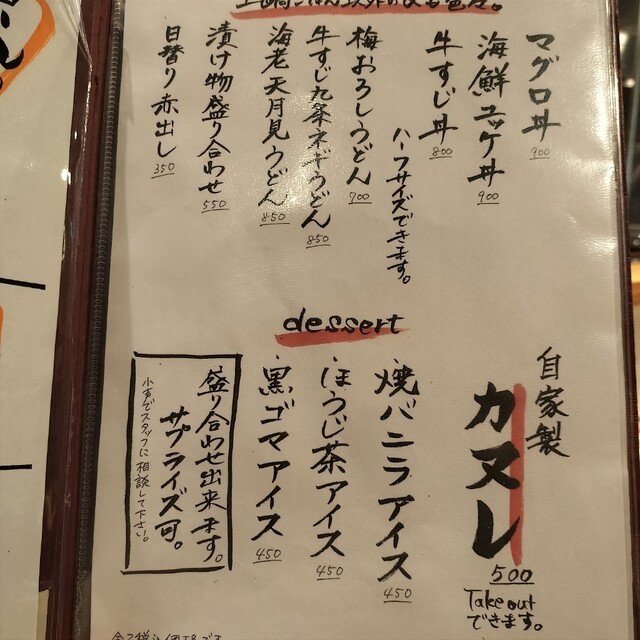 マグロ丼 900
海鮮ユッケ丼 900
牛すじ丼 800
ハーフサイズできます。
梅おろしうどん 700
牛すじ九条ネギうどん 850
海老天月見うどん 850
漬け物盛り合わせ 550
日替り赤出し 350
dessert
自家製
カヌレ
500
Take out
できます。
・焼バニラアイス 450
・ほうじ茶アイス 450
・黒ゴマアイス 450
盛り合わせ出来ます。
サプライズ可。
小声でスタッフに相談して下さい。